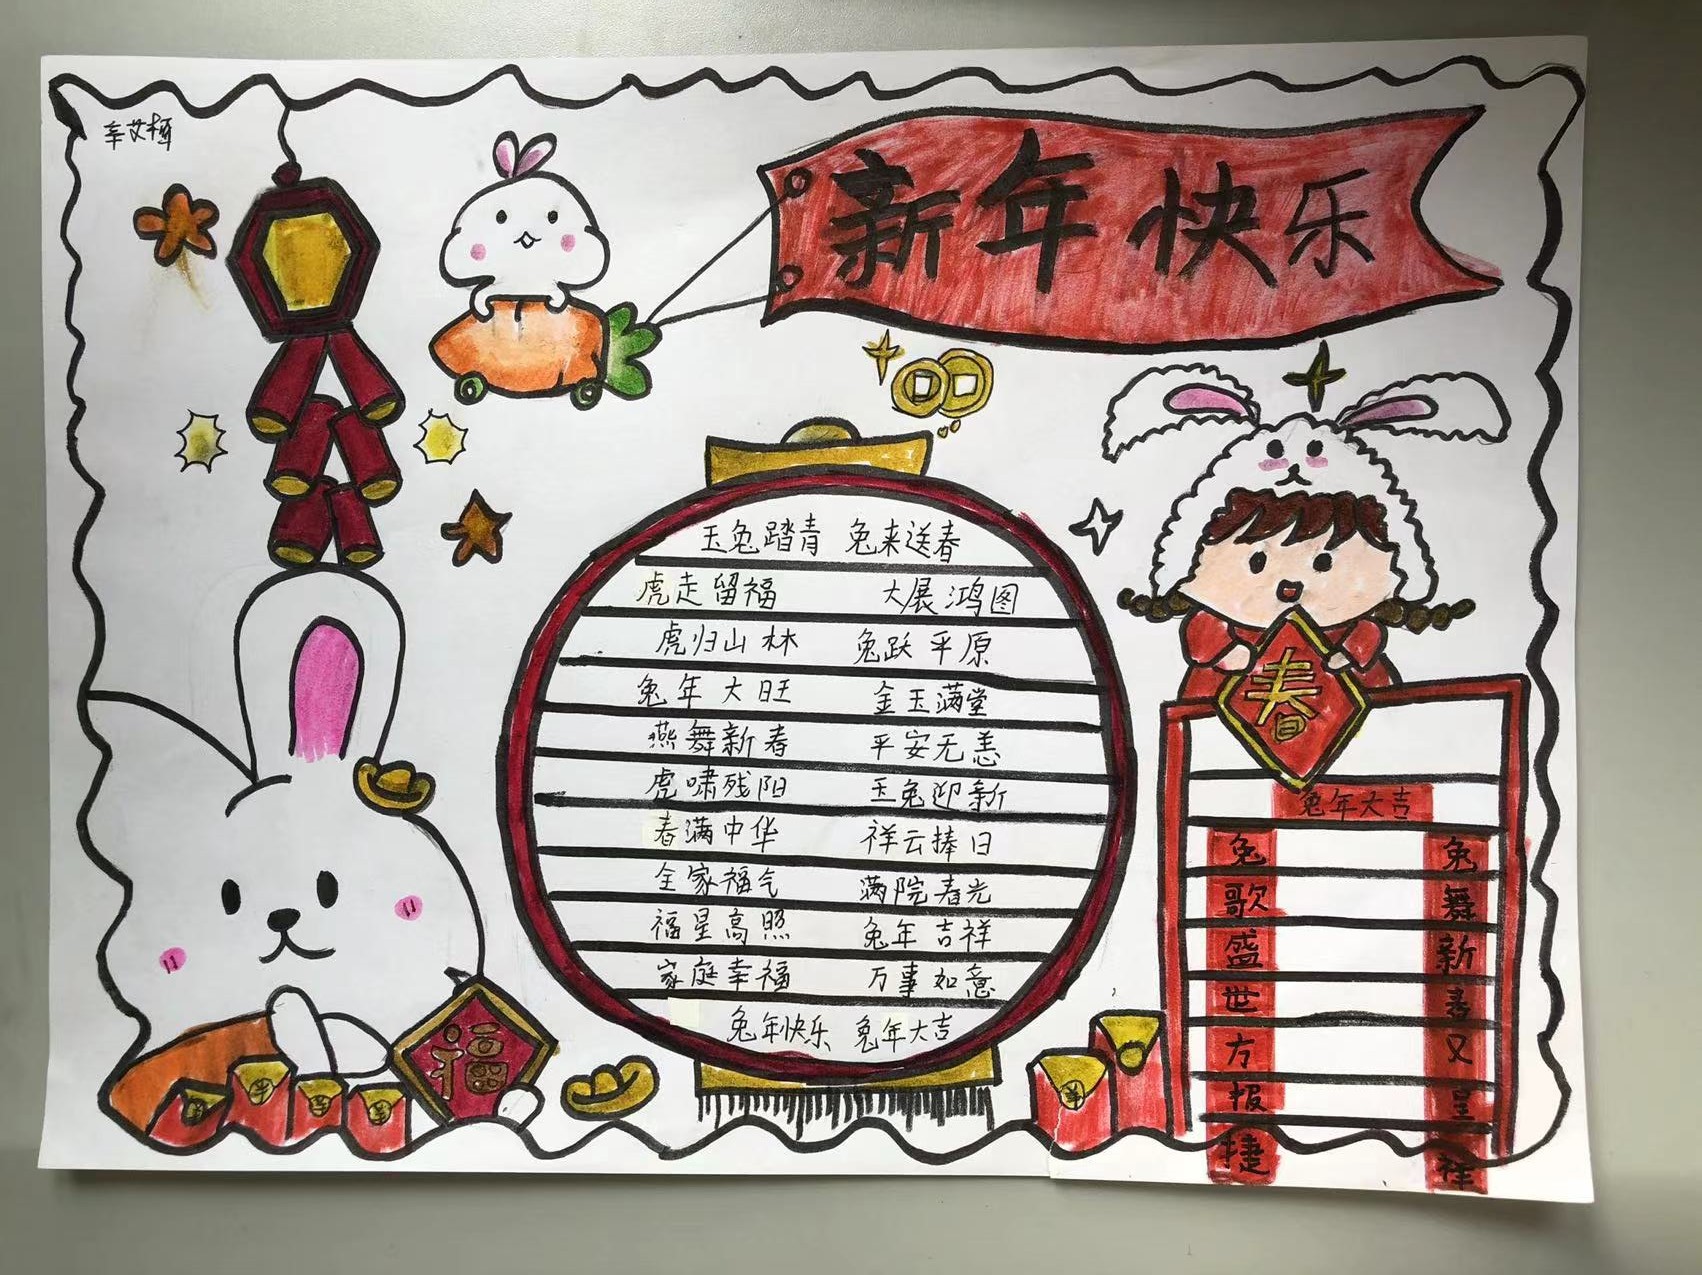 新年快乐
玉兔踏青 兔来送春
虎走留福 大展鸿图
虎归山林 兔跃平原
兔年大旺 金玉满堂
燕舞新春 平安无恙
虎啸残阳 玉兔迎新
春满中华 祥云捧日
全家福气 满院春光
福星高照 兔年吉祥
家庭幸福 万事如意
兔年快乐 兔年大吉
春
兔年大吉
兔歌盛世方报捷
兔舞新春又呈祥
福